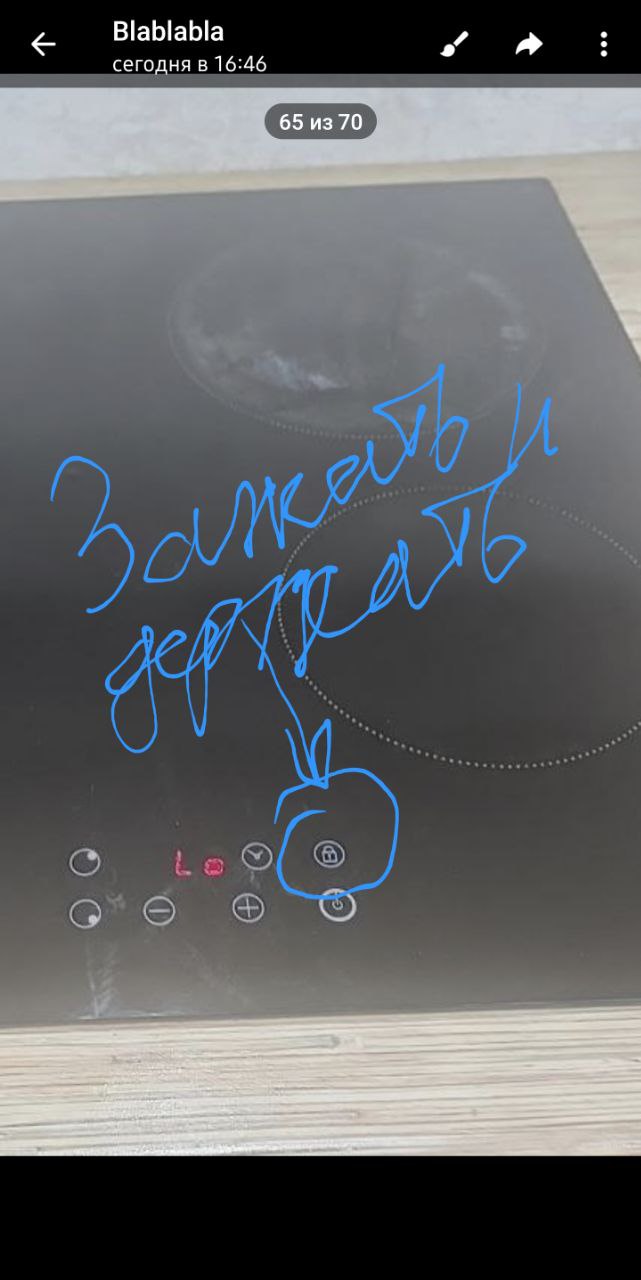 Blablabla
сегодня в 16:46
65 из 70
Зажать и
держать
Lo